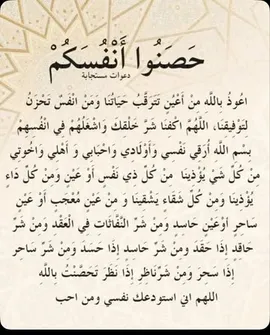 حَصَنُوا أَنْفُسَكُمْ
دعوات مستجابة
اعُوذُ بِاللَّهِ مِنْ أَعْيُنٍ تَتَرَقَّبُ حَيَاتَنَا وَمَنْ انْفُسٌ تَحْزَنُ
لِتَوْفِيقِنَا، اللَّهُمَّ اكْفِنَا شَرَّ خَلْقِك وَاشْغَلْهُمْ فِي انْفُسِهِمْ
بِسْمِ اللَّهِ أُرَقِي نَفْسِي وَأَوْلَادَي وَاحْبَابِي وَ أَهْلِي وَاخُوتِي
مِنْ كُلِّ شَيْ يُؤْذِينَا مِنْ كُلِّ ذِي نَفْسٍ أَوْ عَيْنٍ وَمَنْ كُلِّ دَاءٍ
يُؤْذِينَا وَمَنْ كُلِّ شَقَاء يَشْقِينَا وَ مِنْ عَيْنٍ مُعْجَبٍ أَوْ عَيْنِ
سَاحِرٍ أَوْعَيْنِ حَاسِدٍ وَمَنْ شَرِّ النَّفَّاثَاتِ فِي الْعُقَدِ وَمَنْ شَرِّ
حَاقِدٍ إِذَا حَقَدَ وَمَنْ شَرِّ حَاسِدٍ إِذَا حَسَدَ وَمَنْ شَرِّ سَاحِرٍ
إِذَا سَحَرَ وَمَنْ شَرِّنَاظِرٍ إِذَا نَظَرَ تَحَصَّنْتُ بِاللَّهِ
اللهم اني استودعك نفسي ومن احب